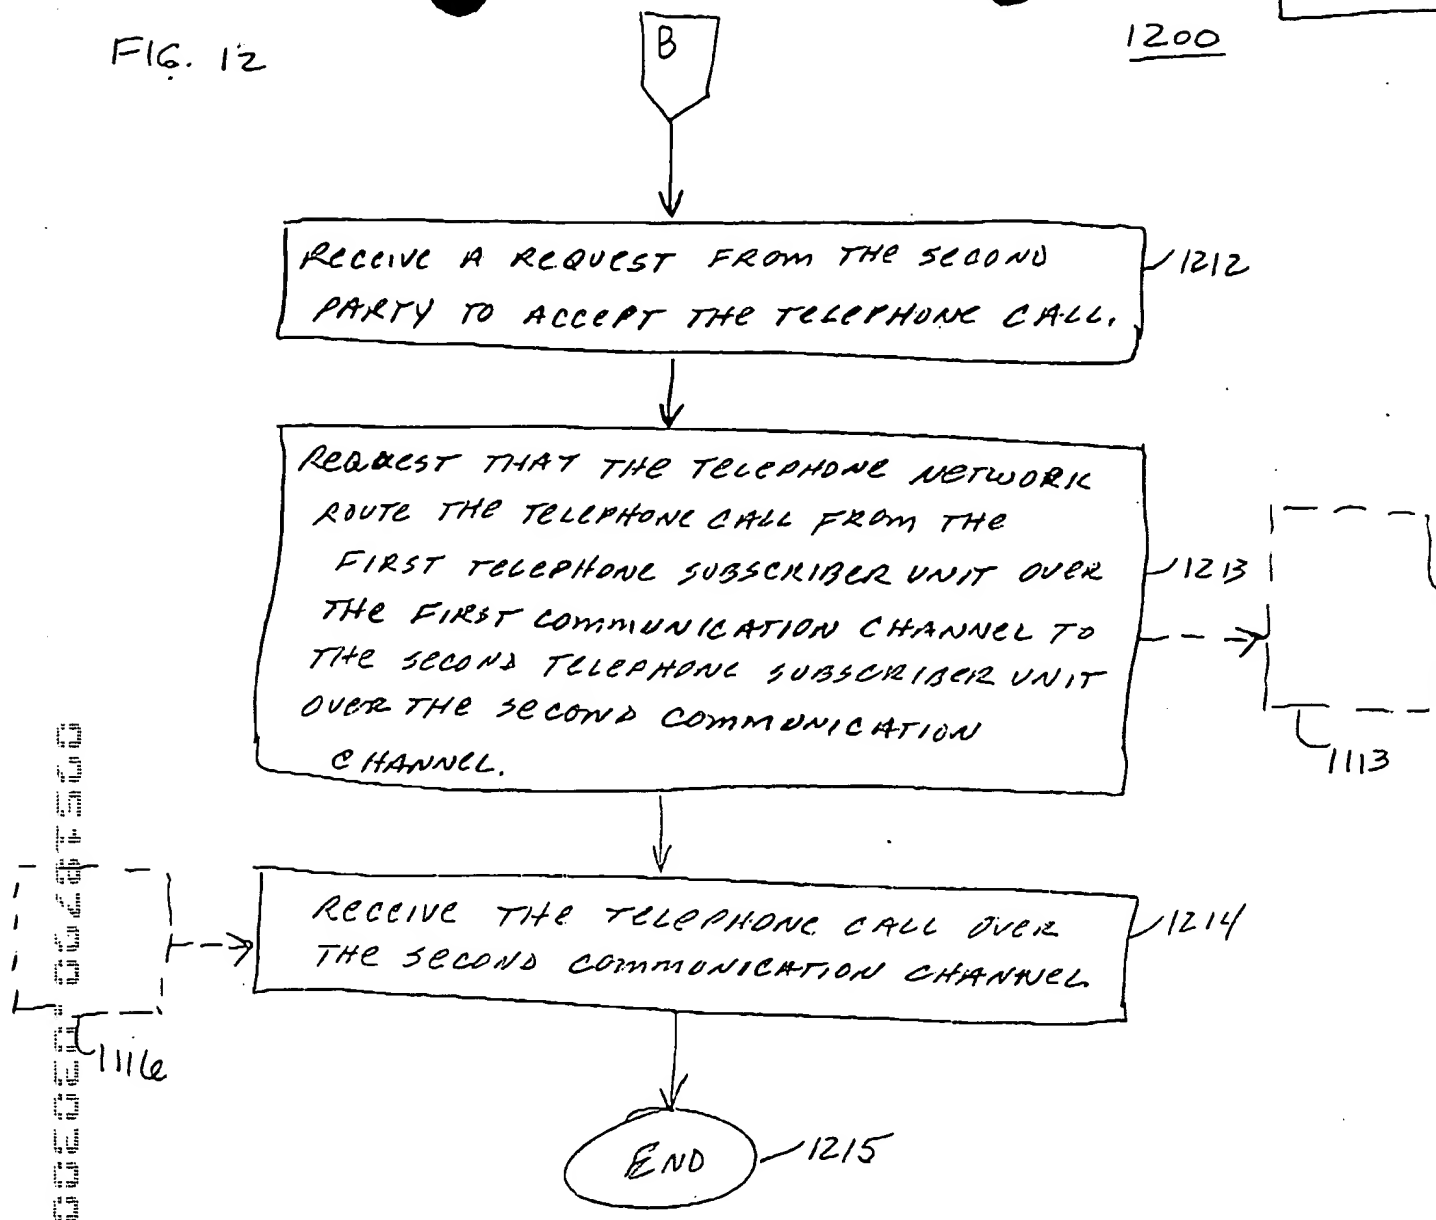 FIG. 12
B
1200
RECEIVE A REQUEST FROM THE SECOND
PARTY TO ACCEPT THE TELEPHONE CALL.
1212
REQUEST THAT THE TELEPHONE NETWORK
ROUTE THE TELEPHONE CALL FROM THE
FIRST TELEPHONE SUBSCRIBER UNIT OVER
THE FIRST COMMUNICATION CHANNEL TO
THE SECOND TELEPHONE SUBSCRIBER UNIT
OVER THE SECOND COMMUNICATION
CHANNEL.
1213
1113
RECEIVE THE TELEPHONE CALL OVER
THE SECOND COMMUNICATION CHANNEL
1214
1116
END
1215